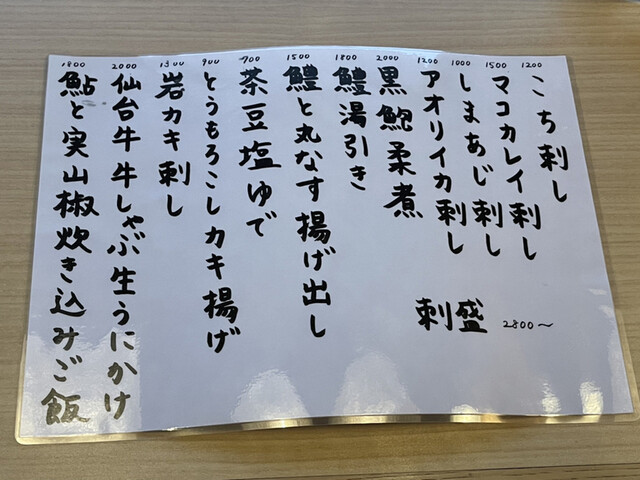 1200
こち刺し
1500
マコカレイ刺し
1000
しまあじ刺し
1200
アオリイカ刺し
刺盛 2800〜
2000
黒鮑柔煮
1800
鱧湯引き
1500
鱧と丸なす揚げ出し
700
茶豆塩ゆで
900
とうもろこしカキ揚げ
1300
岩カキ刺し
2000
仙台牛牛しゃぶ生うにかけ
1800
鮎と実山椒炊き込みご飯